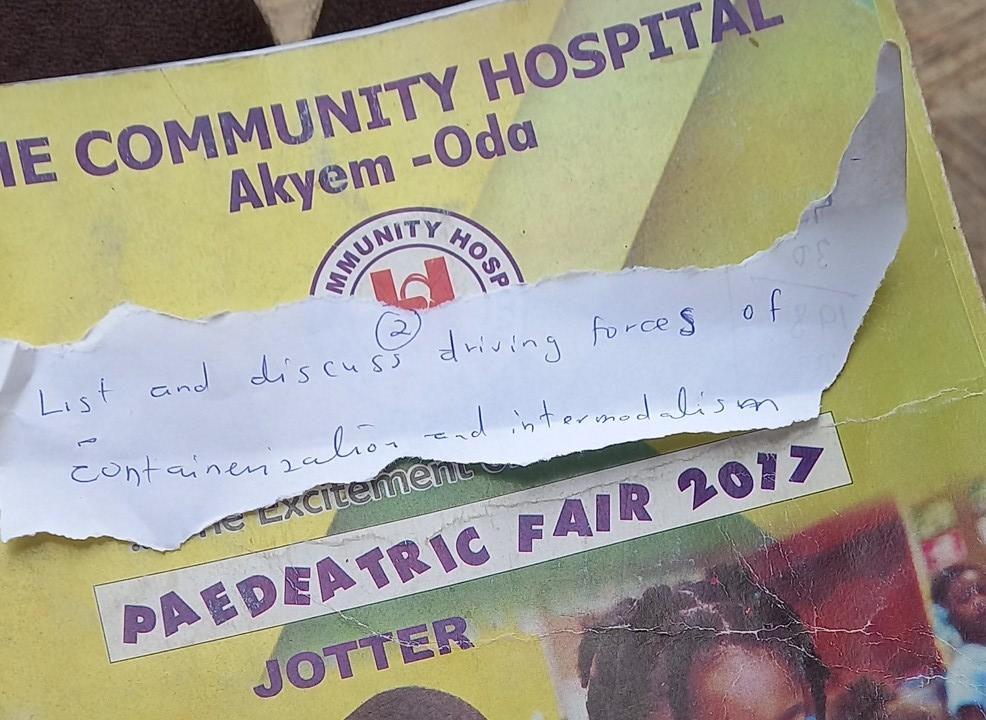 HE COMMUNITY HOSPITAL
Akyem -Oda
MMUNITY HOSP
②
List and discuss driving forces of
containerization and intermodalism
he Excitement
PAEDEATRIC FAIR 2017
JOTTER